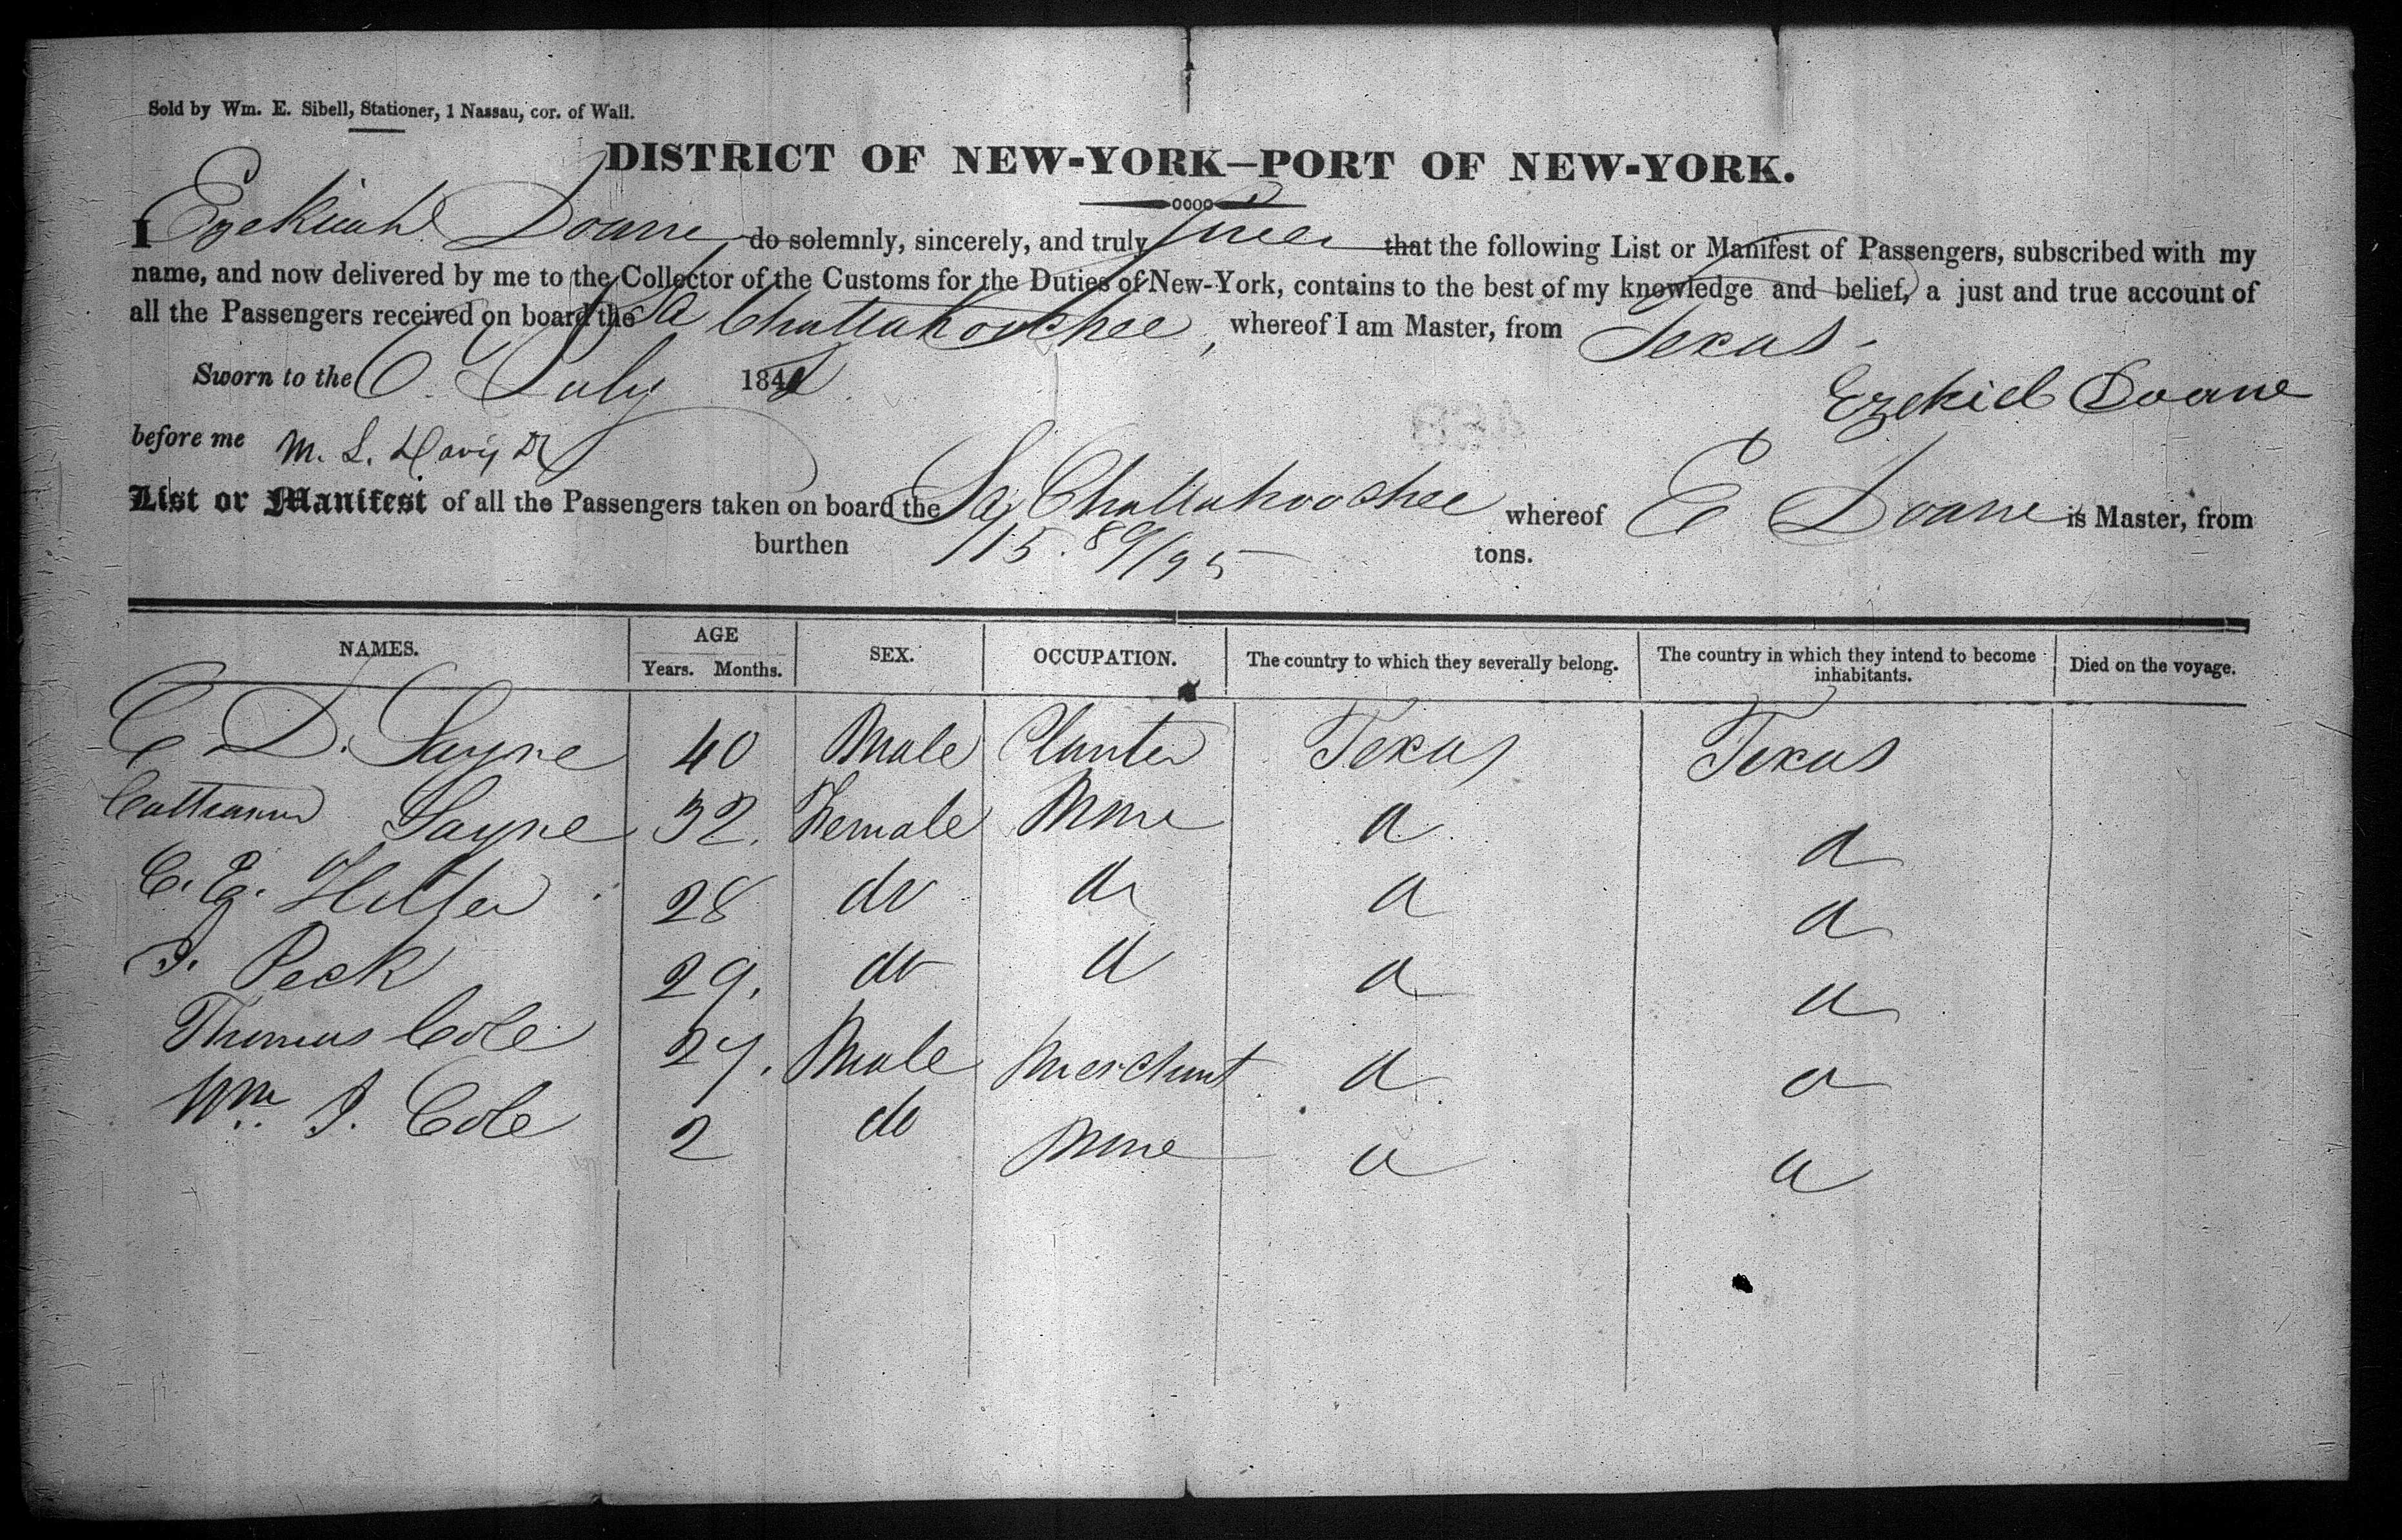 Sold by Wm. E. Sibell, Stationer, 1 Nassau, cor. of Wall.
DISTRICT OF NEW-YORK—PORT OF NEW-YORK.
I Ezekiah Doane do solemnly, sincerely, and truly swear that the following List or Manifest of Passengers, subscribed with my
name, and now delivered by me to the Collector of the Customs for the Duties of New-York, contains to the best of my knowledge and belief, a just and true account of
all the Passengers received on board the Chattahoochee, whereof I am Master, from Texas
Sworn to the 6 July 184
Ezekiel Doane
before me M. L. Davis
List or Manifest of all the Passengers taken on board the Chattahoochee whereof E Doane is Master, from
burthen 115. 89/95 tons.
NAMES. AGE Years. Months. SEX. OCCUPATION. The country to which they severally belong. The country in which they intend to become inhabitants. Died on the voyage.
E D. Sayre 40 Male Planter Texas Texas
Sayre 32. Female None
C. G. 28 do
J. Peck 29. do
Thomas Cole 27. Male Merchant
Wm J. Cole 2 do None